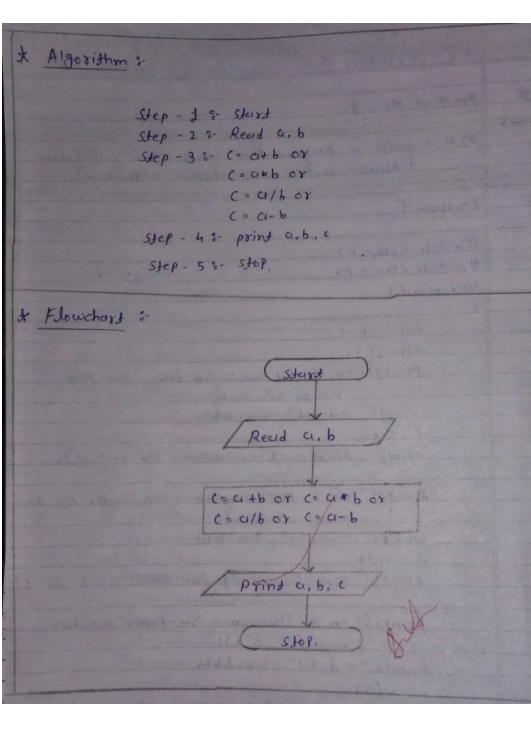 * Algorithm :-
Step - 1 :- Start
Step - 2 :- Read a, b
Step - 3 :- C = a+b or
C = a*b or
C = a/b or
C = a-b
Step - 4 :- print a, b, c
Step - 5 :- Stop.
* Flowchart :-
Start
Read a, b
C = a+b or C = a*b or
C = a/b or C = a-b
Print a, b, c
Stop.